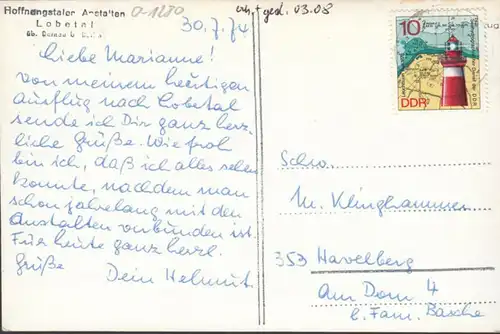 Hoffnungstaler Anstalten
Lobetal
üb. Bernau b.
30.7.74
Liebe Marianne!
Von meinem heutigen
Ausflug nach Lobetal
sende ich Dir ganz herz-
liche Grüße. Wie froh
bin ich, daß ich alles sehen
konnte, nachdem man
schon jahrelang mit den
Anstalten verbunden ist.
Für heute ganz herzl.
Grüße
Dein Helmut.
03.08
10
DDR
Schw.
M. Klinghammer
353 Havelberg
Am Dom 4
b. Fam. Basche